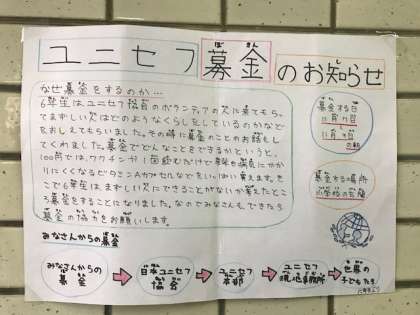 ユニセフ募金のお知らせ
なぜ募金をするのか…
6年生は、ユニセフ協会のボランティアの人に来てもらい、
まずしい人はどのようなくらしをしているのかなど
をおしえてもらいました。その時に募金のことのお話もし
てくれました。募金でどんなことをできるかというと、
100円では、ワクチンが1回飲むだけで
にくくなるビタミンAカプセルなどをいっぱい買えます。そ
こで6年生は、まずしい人にできることがないか考えたとこ
ろ募金をすることになりました。なのでみなさんもできたら
募金の協力をお願いします。
募金する日
11月
11月
の朝
募金する場所
小学校の玄関
みなさんからの募金
みなさんからの募金
日本ユニセフ協会
ユニセフ本部
ユニセフ現地事務所
世界の子どもたち
6年生より